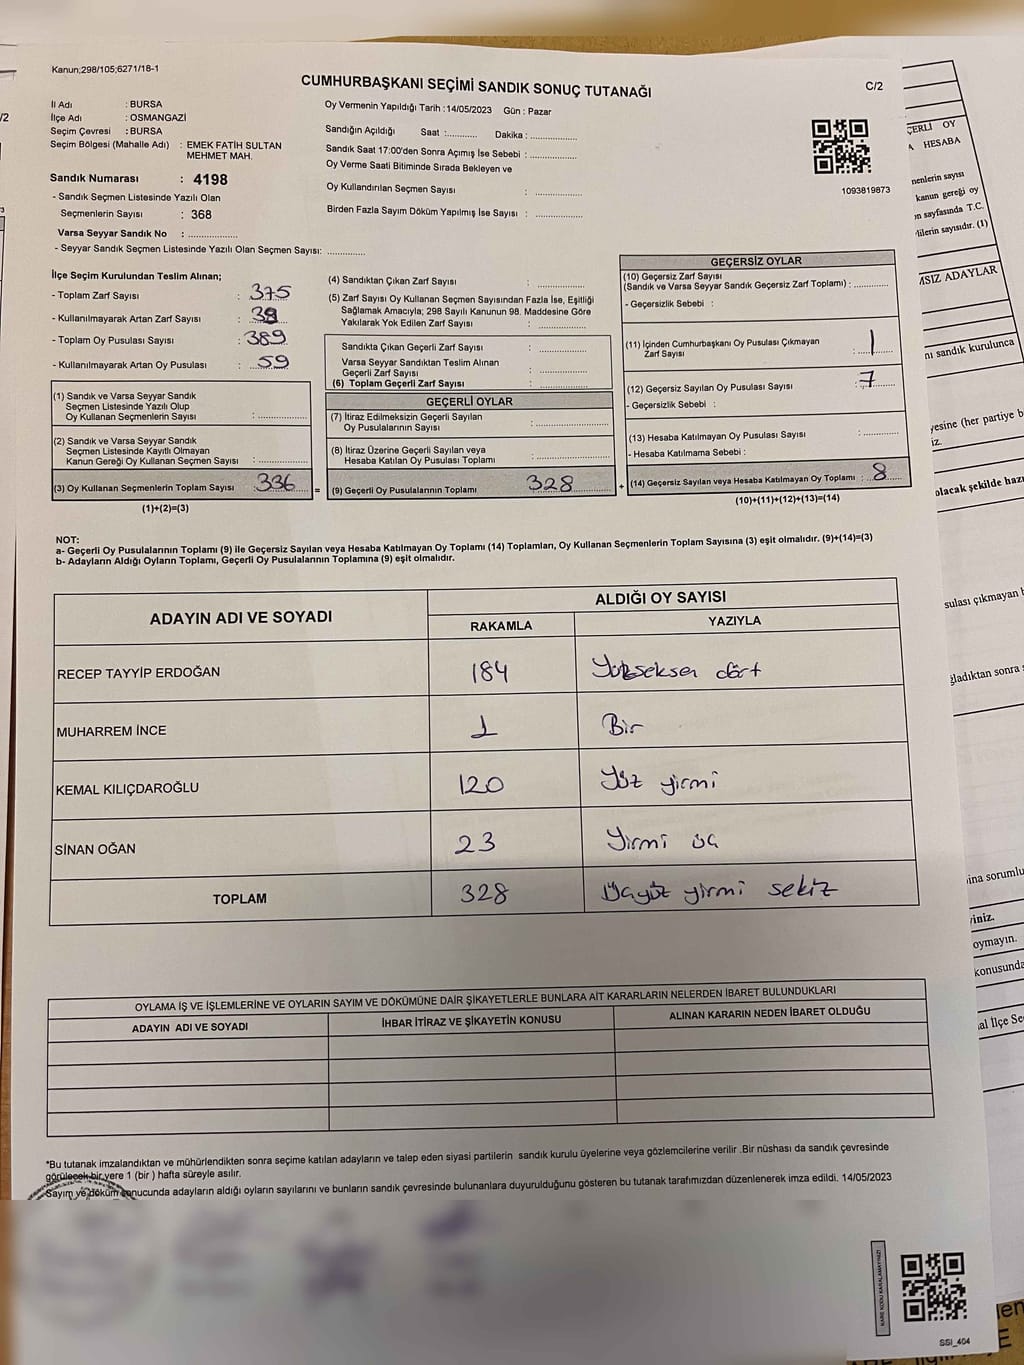 Kanun;298/105;6271/18-1
CUMHURBAŞKANI SEÇİMİ SANDIK SONUÇ TUTANAĞI
C/2
İl Adı : BURSA
İlçe Adı : OSMANGAZİ
Seçim Çevresi : BURSA
Seçim Bölgesi (Mahalle Adı) : EMEK FATİH SULTAN
MEHMET MAH.
Sandık Numarası : 4198
- Sandık Seçmen Listesinde Yazılı Olan
Seçmenlerin Sayısı : 368
Varsa Seyyar Sandık No : ...................
- Seyyar Sandık Seçmen Listesinde Yazılı Olan Seçmen Sayısı: ..............
Oy Vermenin Yapıldığı Tarih : 14/05/2023 Gün : Pazar
Sandığın Açıldığı Saat :........... Dakika : .................
Sandık Saat 17:00'den Sonra Açımış İse Sebebi : .................
Oy Verme Saati Bitiminde Sırada Bekleyen ve
Oy Kullandırılan Seçmen Sayısı : .................
Birden Fazla Sayım Döküm Yapılmış İse Sayısı : .................
1093819873
İlçe Seçim Kurulundan Teslim Alınan;
- Toplam Zarf Sayısı : 375
- Kullanılmayarak Artan Zarf Sayısı : 39
- Toplam Oy Pusulası Sayısı : 389
- Kullanılmayarak Artan Oy Pusulası : 59
(1) Sandık ve Varsa Seyyar Sandık
Seçmen Listesinde Yazılı Olup
Oy Kullanan Seçmenlerin Sayısı : .................
(2) Sandık ve Varsa Seyyar Sandık
Seçmen Listesinde Kayıtlı Olmayan
Kanun Gereği Oy Kullanan Seçmen Sayısı : .................
(3) Oy Kullanan Seçmenlerin Toplam Sayısı : 336
(1)+(2)=(3)
(4) Sandıktan Çıkan Zarf Sayısı : .................
(5) Zarf Sayısı Oy Kullanan Seçmen Sayısından Fazla İse, Eşitliği
Sağlamak Amacıyla; 298 Sayılı Kanunun 98. Maddesine Göre
Yakılarak Yok Edilen Zarf Sayısı : .................
Sandıkta Çıkan Geçerli Zarf Sayısı : .................
Varsa Seyyar Sandıktan Teslim Alınan
Geçerli Zarf Sayısı : .................
(6) Toplam Geçerli Zarf Sayısı : .................
GEÇERLİ OYLAR
(7) İtiraz Edilmeksizin Geçerli Sayılan
Oy Pusulalarının Sayısı : .................
(8) İtiraz Üzerine Geçerli Sayılan veya
Hesaba Katılan Oy Pusulası Toplamı : .................
= (9) Geçerli Oy Pusulalarının Toplamı 328
GEÇERSİZ OYLAR
(10) Geçersiz Zarf Sayısı
(Sandık ve Varsa Seyyar Sandık Geçersiz Zarf Toplamı) : ............
- Geçersizlik Sebebi :
(11) İçinden Cumhurbaşkanı Oy Pusulası Çıkmayan
Zarf Sayısı : 1
(12) Geçersiz Sayılan Oy Pusulası Sayısı : 7
- Geçersizlik Sebebi :
(13) Hesaba Katılmayan Oy Pusulası Sayısı : ............
- Hesaba Katılmama Sebebi :
+ (14) Geçersiz Sayılan veya Hesaba Katılmayan Oy Toplamı : 8
(10)+(11)+(12)+(13)=(14)
NOT:
a- Geçerli Oy Pusulalarının Toplamı (9) ile Geçersiz Sayılan veya Hesaba Katılmayan Oy Toplamı (14) Toplamları, Oy Kullanan Seçmenlerin Toplam Sayısına (3) eşit olmalıdır. (9)+(14)=(3)
b- Adayların Aldığı Oyların Toplamı, Geçerli Oy Pusulalarının Toplamına (9) eşit olmalıdır.
ADAYIN ADI VE SOYADI ALDIĞI OY SAYISI
RAKAMLA YAZIYLA
RECEP TAYYİP ERDOĞAN 184 Yüzseksen dört
MUHARREM İNCE 1 Bir
KEMAL KILIÇDAROĞLU 120 Yüz yirmi
SİNAN OĞAN 23 Yirmi üç
TOPLAM 328 Üçyüz yirmi sekiz
OYLAMA İŞ VE İŞLEMLERİNE VE OYLARIN SAYIM VE DÖKÜMÜNE DAİR ŞİKAYETLERLE BUNLARA AİT KARARLARIN NELERDEN İBARET BULUNDUKLARI
ADAYIN ADI VE SOYADI İHBAR İTİRAZ VE ŞİKAYETİN KONUSU ALINAN KARARIN NEDEN İBARET OLDUĞU
*Bu tutanak imzalandıktan ve mühürlendikten sonra seçime katılan adayların ve talep eden siyasi partilerin sandık kurulu üyelerine veya gözlemcilerine verilir .Bir nüshası da sandık çevresinde
görülecek bir yere 1 (bir ) hafta süreyle asılır.
Sayım ve döküm sonucunda adayların aldığı oyların sayılarını ve bunların sandık çevresinde bulunanlara duyurulduğunu gösteren bu tutanak tarafımızdan düzenlenerek imza edildi. 14/05/2023
KARE KODU KARALAMAYINIZ!
SSI_404
/2
ÇERLİ OY
A HESABA
menlerin sayısı
kanun gereği oy
n sayfasında T.C.
lilerin sayısıdır. (1)
MSIZ ADAYLAR
nı sandık kurulunca
yesine (her partiye b
iz.
olacak şekilde hazı
sulası çıkmayan
ğladıktan sonra
ına sorumlu
yiniz.
oymayın.
konusunda
al İlçe Se